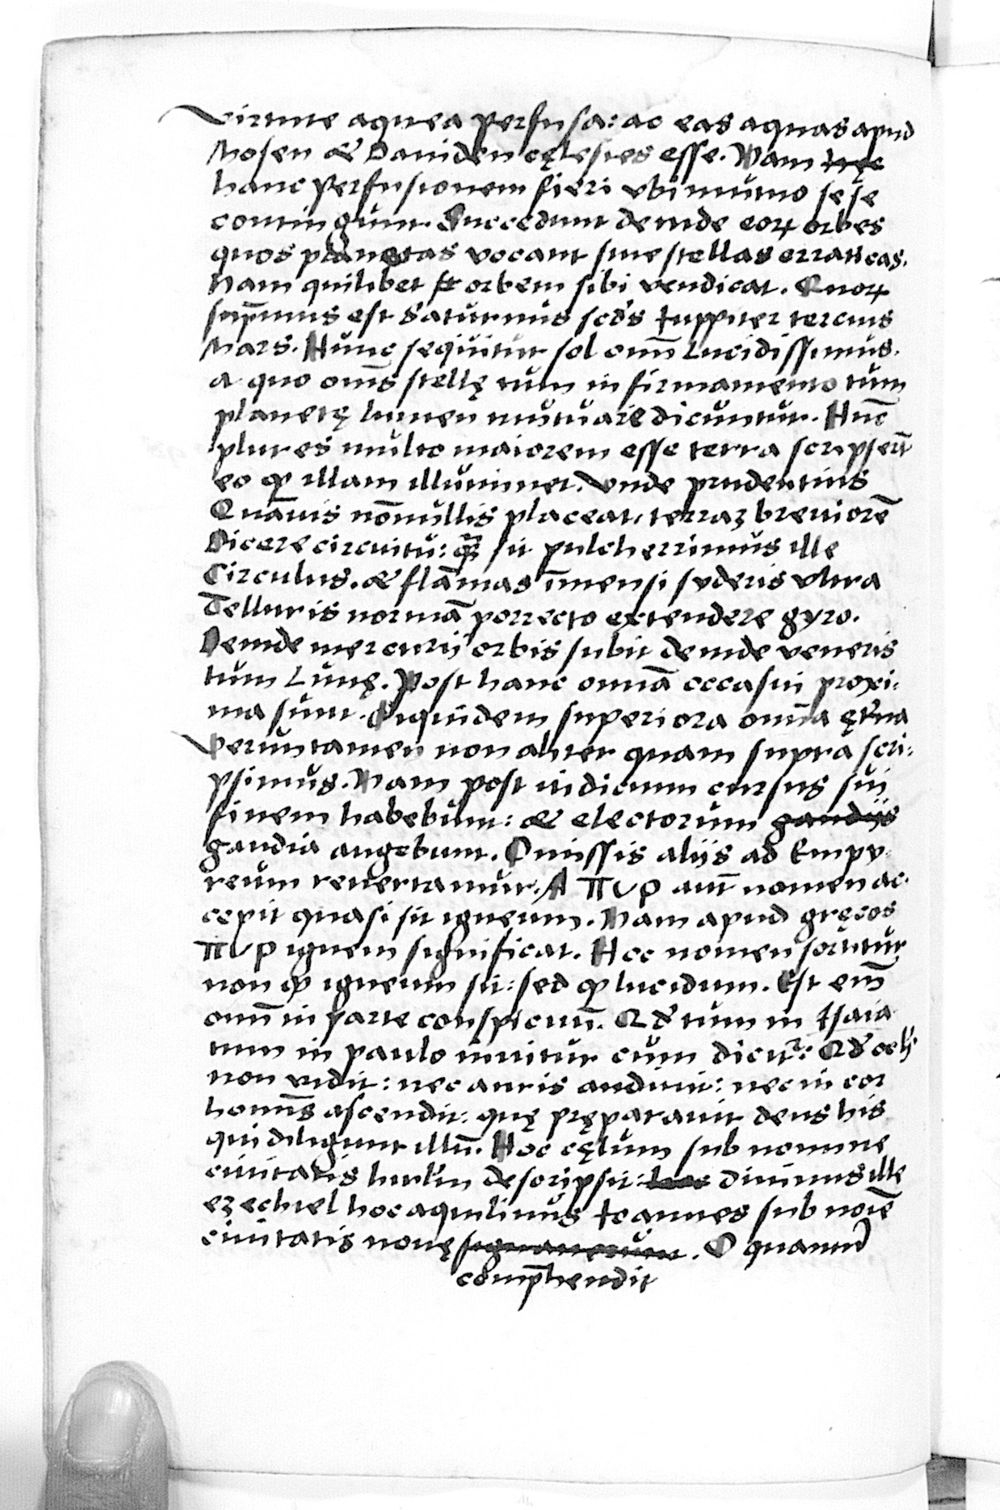 Virtute aquea perfusa: ac eas aquas apud
Mosen & Dauiden cęlestes esse. Nam
hanc perfusionem fieri vbi mutuo sese
contingunt. Succedunt deinde eoꝝ orbes
quos planetas vocant siue stellas erraticas.
Nam quilibet orbem sibi vendicat. Quoꝝ
supͫmus est Saturnus scďs Iuppiter tercius
Mars. Hunc sequitur sol omniū Lucidissimus.
a quo omēs stellę tum in firmamento tum
planetę lumen mutuare dicuntur. Hūc
plures multo maiorem esse terra scripserūt
eo ꝙ illam illuminet. Vnde prudentius
Quāuis nōnullis placeat, terraꝫ breuiorē
Dicere circuitu: quā sit pulcherrimus ille
Circulus. & flāmas īmensi syderis vltra
Telluris normā porrecto extendere gyro.
Deinde mercurij orbis subit deinde veneris
tum Lunę. Post hanc omīa occasui proxi:
ma sunt. Siquidem superiora omīa ętͤna
Veruntamen non aliter quam supra scri:
psimus. Nam post iudicium cursus sui
finem habebunt: & electorum gaudijs
gaudia augebunt. Omissis alijs ad Empy:
reum reuertamur. A πυρ aut̄ nomen ac:
cepit quasi sit igneum. Nam apud gręcos
πυρ ignem significat. Hoc nomen sortitur
non ꝙ igneum sit: sed ꝙ lucidum. Est em̄
omī in parte conspicuū. Qď tum in Isaia
tum in paulo innuitur cum dicitͬ: Qď ocłs
non vidit: nec auris audiuit: nec in cor
homīs ascendit: quę pręparauit deus his
qui diligunt illū. Hoc cęlum sub nomine
ciuitatis descripsit: diuinus ille
ezechiel hoc aquilinus Ioannes sub noīe
ciuitatis nouę signauerunt. O quantū
comp̄hendit